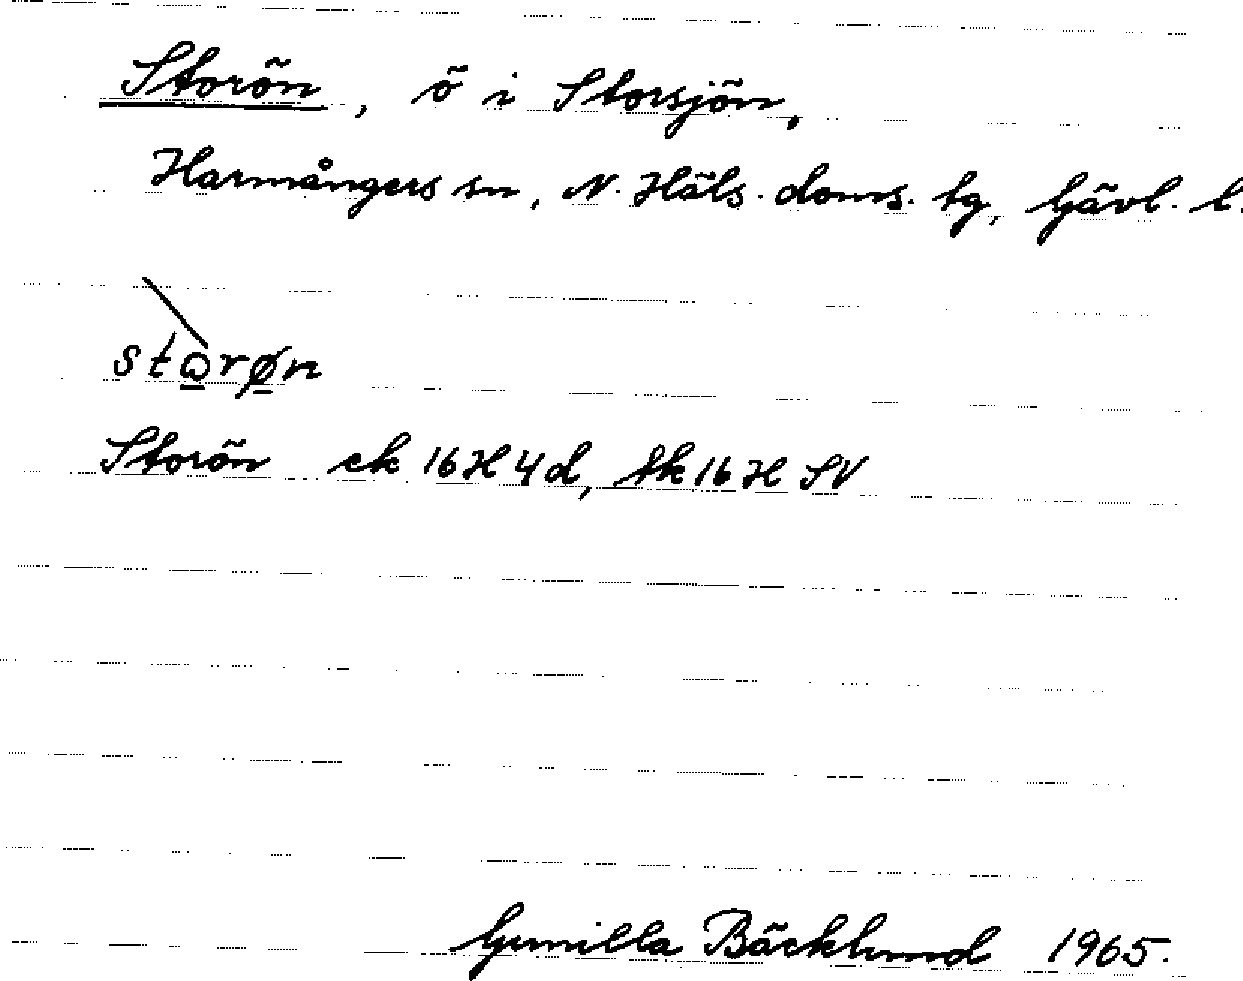 Storön, ö i Storsjön,
Harmångers sn, N. Häls. doms. tg, Gävl. l.
stòrøn
Storön ek 16H4d, tk 16 H SV
Gunilla Bäcklund 1965.